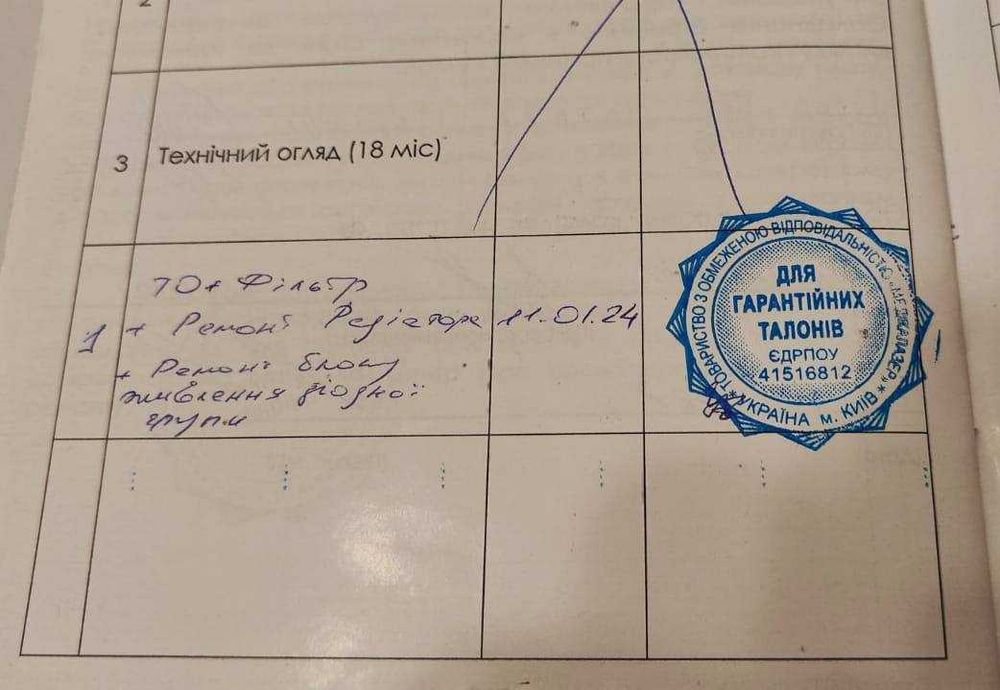 2
3 Технічний огляд (18 міс)
1
ТО + Фільтр
+ Ремонт Радіатора 11.01.24
+ Ремонт блоку
живлення діодної
групи
ТОВАРИСТВО З ОБМЕЖЕНОЮ ВІДПОВІДАЛЬНІСТЮ
ДЛЯ
ГАРАНТІЙНИХ
ТАЛОНІВ
ЄДРПОУ
41516812
* УКРАЇНА м. КИЇВ *